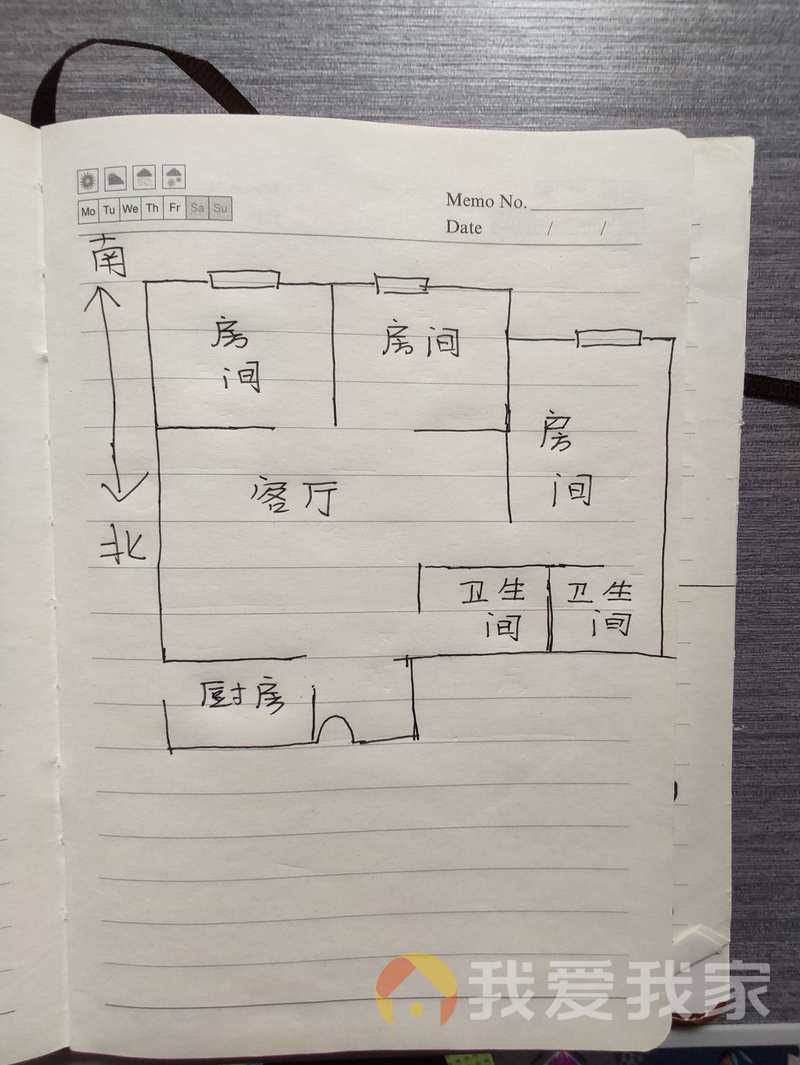 Memo No.
Mo Tu We Th Fr Sa Su
Date / /
南
房
间
房间
房
间
客厅
北
卫生
间
卫生
间
厨房
我爱我家